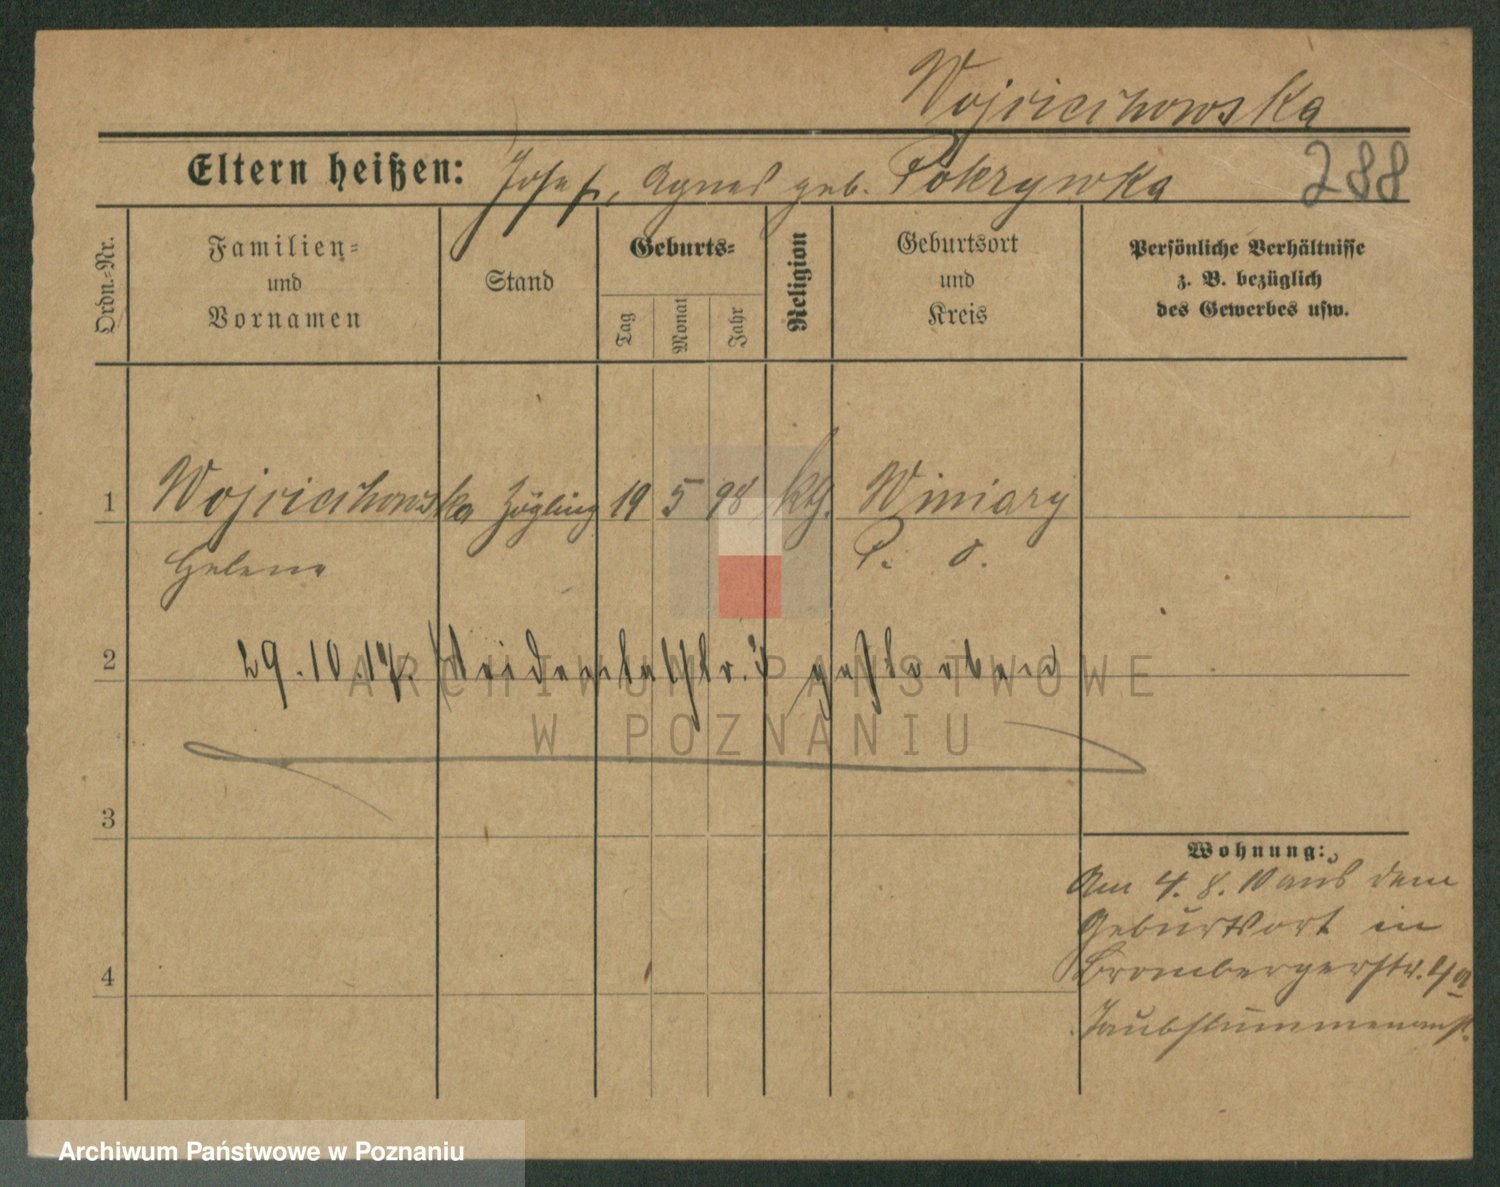 Wojcicihowska
Eltern heißen: Josef, Agnes geb. Pokrywka 288
Ordn.-Nr.
Familien-
und
Vornamen
Stand
Geburts-
Tag
Monat
Jahr
Religion
Geburtsort
und
Kreis
Persönliche Verhältnisse
z. B. bezüglich
des Gewerbes usw.
1 Wojcicihowska Zögling 19 5 98 kth. Winiary
Helene P. O.
2 29.10.17. gestorben
ARCHIWUM PAŃSTWOWE
W POZNANIU
3
Wohnung:
Am 4. 8. 10 aus dem
Geburtsort in
4 Brombergerstr. 4a
Taubstummenanst.
Archiwum Państwowe w Poznaniu